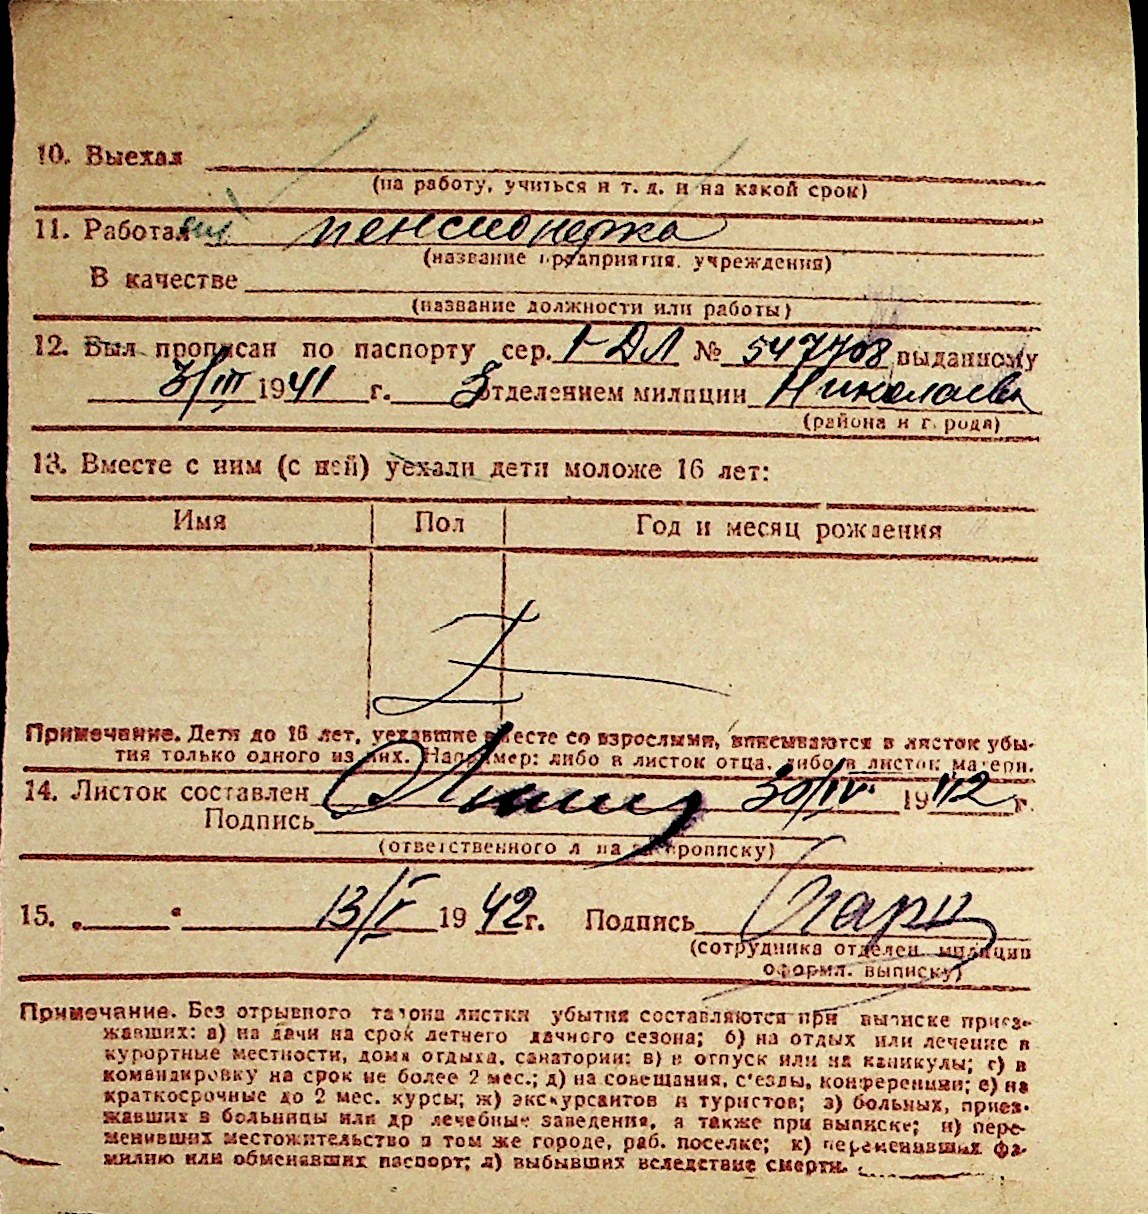 10. Выехал
(на работу, учиться и т. д. и на какой срок)
11. Работал пенсионерка
(название предприятия, учреждения)
В качестве
(название должности или работы)
12. Был прописан по паспорту сер. I-ДЛ № 547708 выданному
3/III 1941 г. 5 отделением милиции Николаев
(района и города)
13. Вместе с ним (с ней) уехали дети моложе 16 лет:
Имя Пол Год и месяц рождения
Z
Примечание. Дети до 16 лет, уехавшие вместе со взрослыми, вписываются в листок убы-
тия только одного из них. Например: либо в листок отца, либо в листок матери.
14. Листок составлен 30/IV 1942 г.
Подпись
(ответственного л на прописку)
15. „ “ 13/V 1942 г. Подпись
(сотрудника отделен. милиции
оформл. выписку)
Примечание. Без отрывного талона листки убытия составляются при выписке приез-
жавших: а) на дачи на срок летнего дачного сезона; б) на отдых или лечение в
курортные местности, дома отдыха, санатории; в) в отпуск или на каникулы; г) в
командировку на срок не более 2 мес.; д) на совещания, с'езды, конференции; е) на
краткосрочные до 2 мес. курсы; ж) экскурсантов и туристов; з) больных, приез-
жавших в больницы или др лечебные заведения, а также при выписке; и) пере-
менивших местожительство в том же городе, раб. поселке; к) переменивших фа-
милию или обменявших паспорт; л) выбывших вследствие смерти.